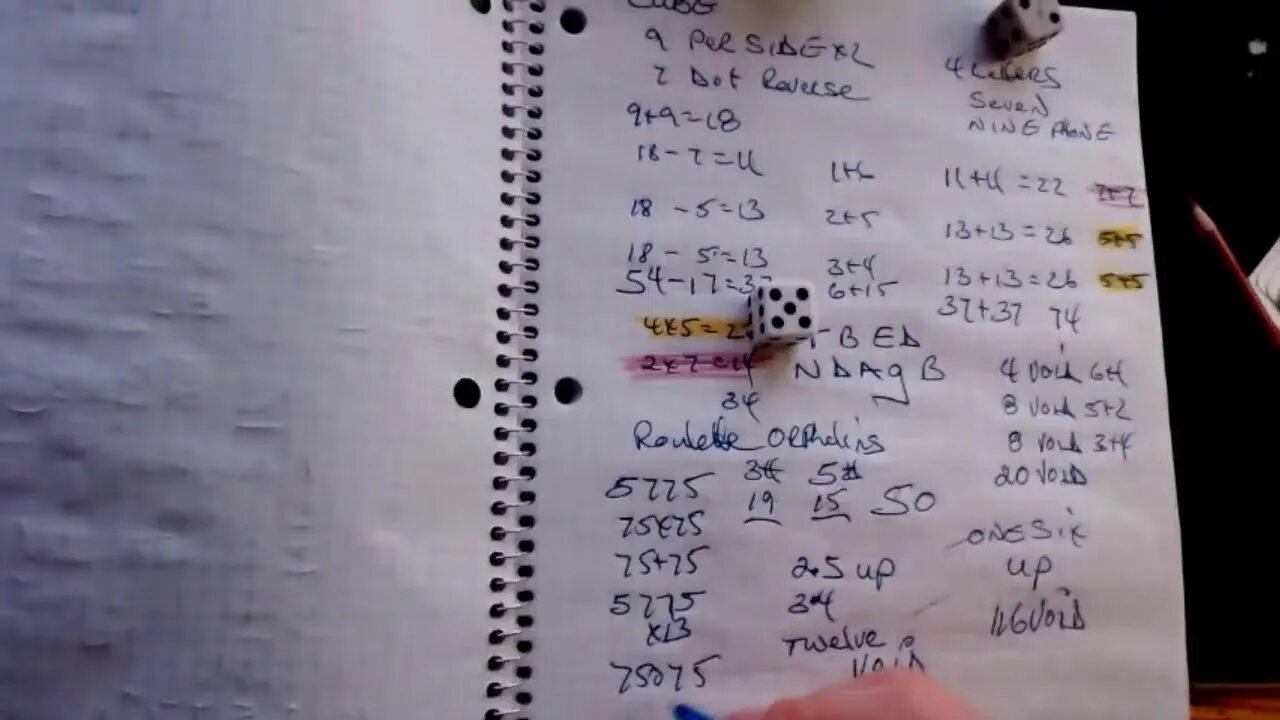 CUBE
9 Per SIDE x2
7 Dot Reverse
9+9=18
18-7=11 1+6
18-5=13 2+5
18-5=13 3+4
54-17=37 6+15
4x5=2
2x7=14
34
4 Letters
Seven
NINE PHONE
11+11=22 7+7
13+13=26 5+5
13+13=26 5+5
37+37 74
BED
NDAgB
4 Void 6+1
8 Void 5+2
8 Void 3+4
20 VOID
Roulette Orphelins
5775 34 5
75x75 19 15 50
75+75
5775
x13
75075
2.5 up
34
Twelve
VOID
ONE Six
up
116 VOID